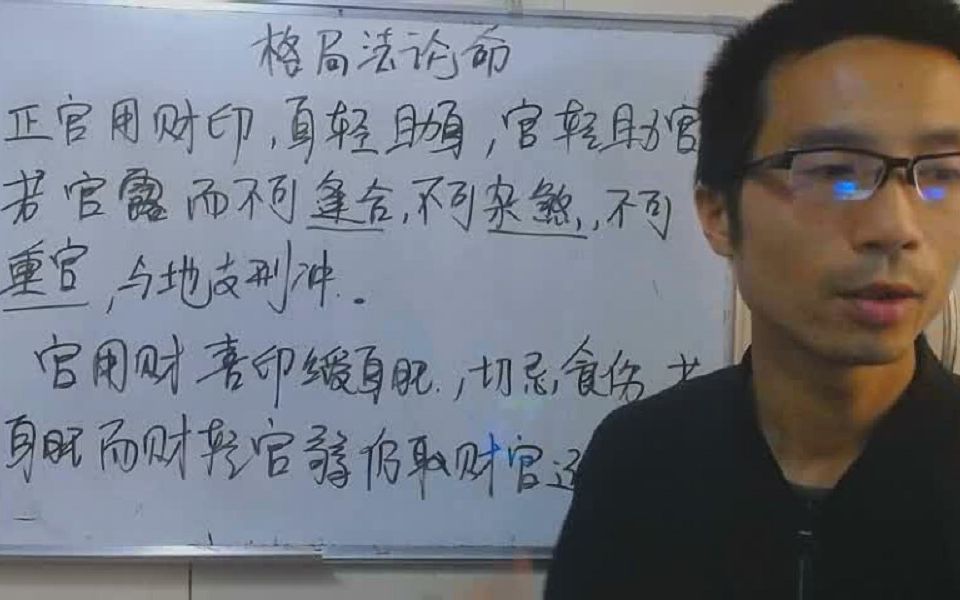 格局法论命
正官用财印，身轻助身，官轻助官
若官露而不可逢合，不可杂煞，不可
重官，与地支刑冲。
官用财喜印绶身旺，切忌食伤
身旺而财轻官 仍取财官